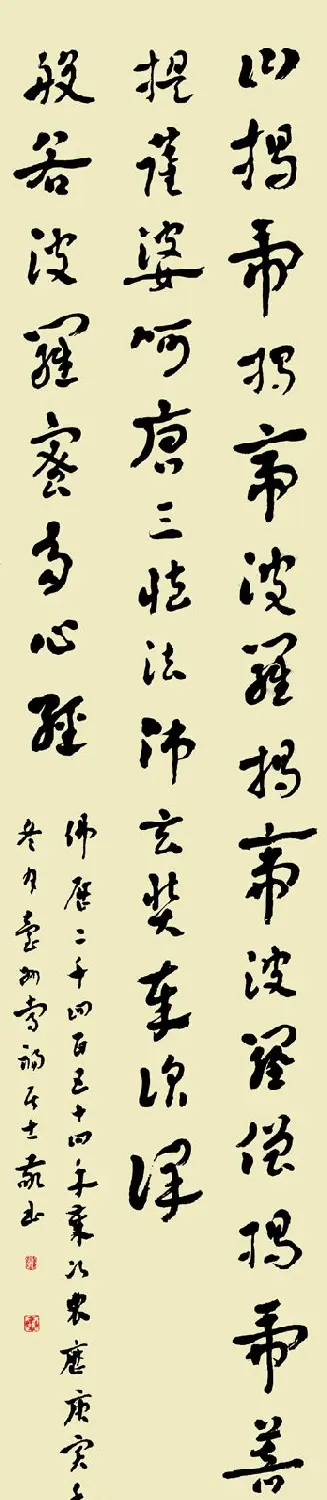 曰揭帝揭帝波羅揭帝波羅僧揭帝菩
提薩婆呵唐三藏法師玄奘奉詔譯
般若波羅蜜多心經
佛歷二千四百五十四年歲次農歷庚寅年
月臺州居士敬書